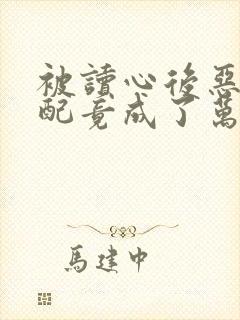 被讀心後惡
配竟成了萬
馬建中